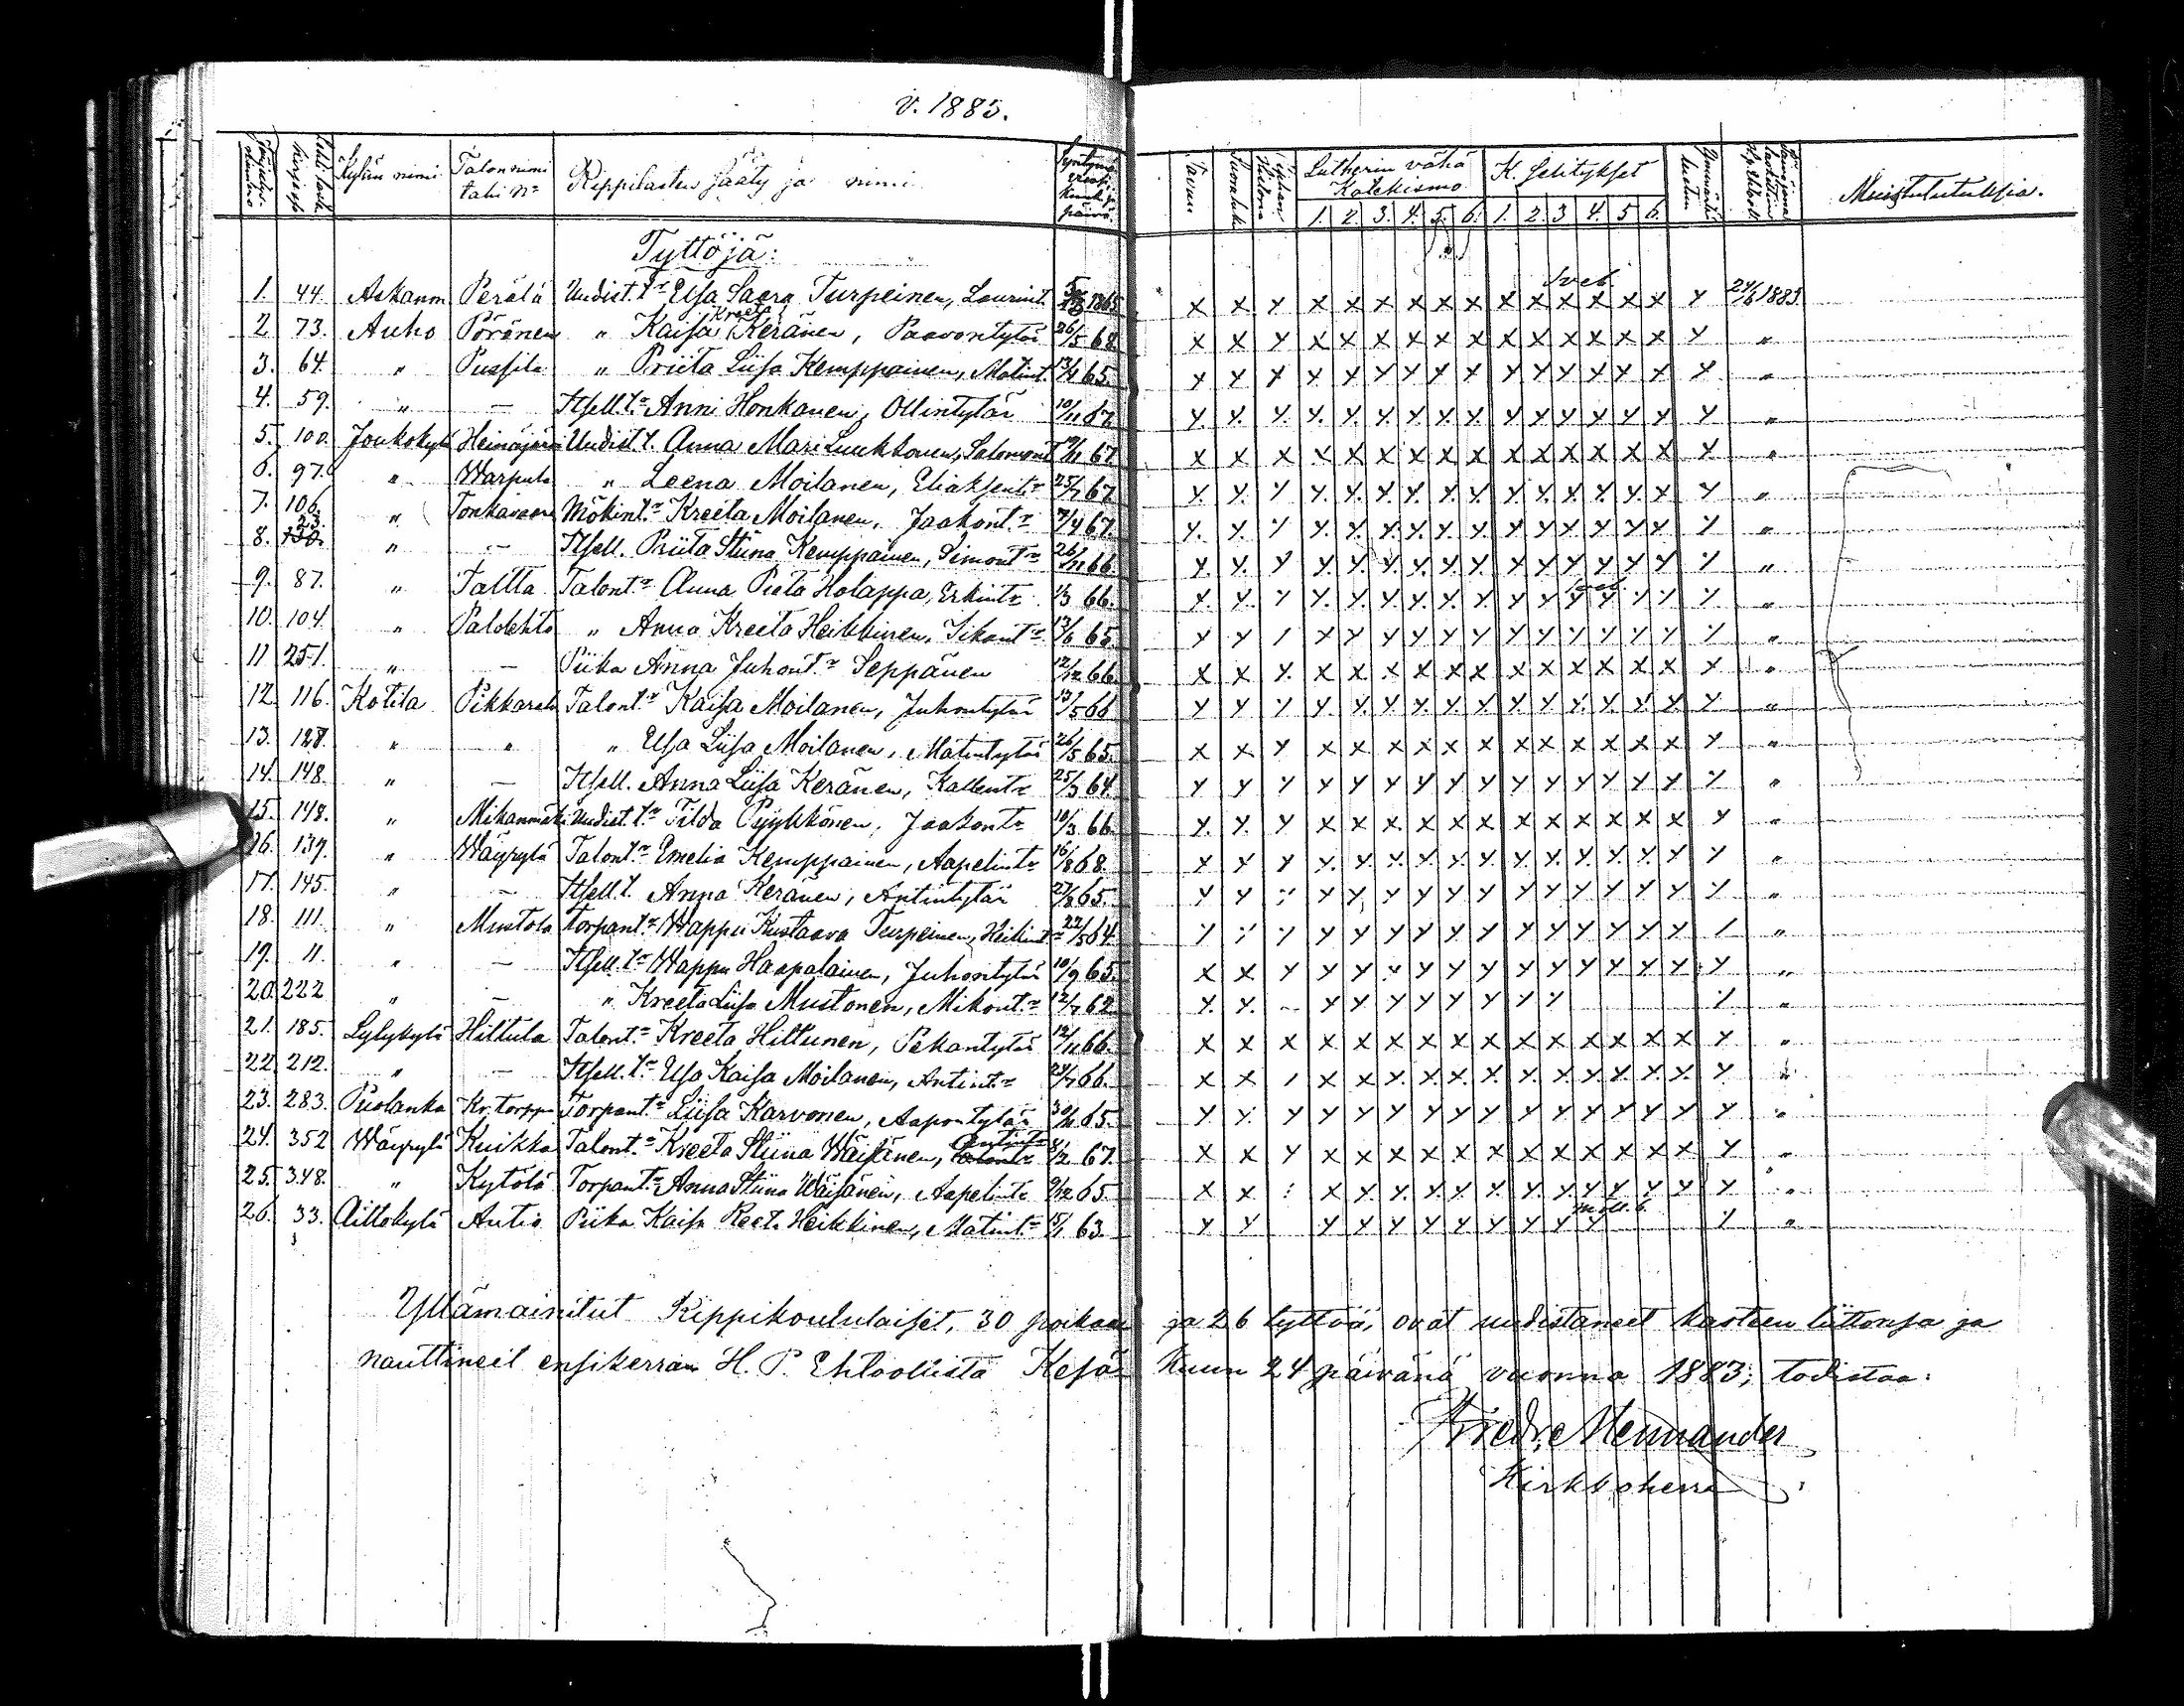 v. 1883.
Kylän nimi Talon nimi tahi No Rippilasten sääty ja nimi Lutherin vähä Katekismo K. Selitykset Muistutuksia.
1. 2. 3. 4. 5. 6. 1. 2. 3 4. 5 6.
Tyttöjä:
1. 44. Askanm Perälä Uudist. tr Elsa Saara Turpeinen, Laurint. 1865 x x y x x x x x x x x x x x x y 24/6 1883.
2 73. Auho Pörönen " Kaisa Kreeta Keränen, Paavontytär 26/5 68. x x y x x x x x x x x x x x x y "
3. 64. " Pussila " Priita Liisa Kemppainen, Matint. 13/4 65. y y y y y y y y y y y y y y y y "
4. 59. " — Itsell. tr Anni Honkanen, Ollintytär 10/11 67 y y y y y y y y y y y y y y y y "
5. 100. Joukokylä Heinäjärvi Uudist. t. Anna Mari Luukkonen, Salomont 67 x x x x x x x x x x x x x x x x "
6. 97. " Warpula " Leena Moilanen, Eliaksentr 25/7 67 y y y y y y y y y y y y y y y y "
7. 106. " Tonkavaara Mökint.r Kreeta Moilanen, Jaakont.r 7/4 67. y y y y y y y y y y y y y y y y "
8. 23. " — Itsell. Priita Stiina Kemppainen, Simontr 26/11 66. y y y y y y y y y y y y y y y y "
9. 87. " Taltta Talontr Anna Pieta Holappa, Erkintr 1/3 66. y y y y y y y y y y y y y y y y "
10. 104. " Palolehto " Anna Kreeta Heikkinen, Sikantr 13/6 65. y y y y y y y y y y y y y y y y "
11 251. " — Piika Anna Juhont.r Seppänen 12/12 66. x x y x x x x x x x x x x x x y "
12. 116. Kotila Pikkarala Talont.r Kaisa Moilanen, Juhontytär 13/5 66 y y y y y y y y y y y y y y y y "
13. 128. " " " Elsa Liisa Moilanen, Matintytär 26/5 65. x x y x x x x x x x x x x x x y "
14. 148. " — Itsell. Anna Liisa Keränen, Kallentr 25/3 64. y y y y y y y y y y y y y y y y "
15. 148. " Mikanmäki Uudist. tr Tilda Pyykkönen, Jaakontr 10/3 66. y y y x x x x x x x x x x x x y "
16. 139. " Wäyrylä Talont.r Emelia Kemppainen, Aapelintr 16/8 68. y y y y y y y y y y y y y y y y "
17. 145. " — Itsell. t. Anna Keränen, Antintytär 27/8 65. y y y y y y y y y y y y y y y y "
18. 111. " Mustola Torpant.r Wappu Kustaava Turpeinen, Heikint 22/5 64. y y y y y y y y y y y y y y y y "
19. 11. " — Itsell. tr Wappu Haapalainen, Juhontytär 10/9 65. x x y y y y y y y y y y y y y y "
20. 222 " — " Kreeta Liisa Mustonen, Mikont.r 12/7 62. y y - y y y y y y y y y "
21. 185. Lylykylä Hiltula Talont.r Kreeta Hiltunen, Pekantytär 12/11 66. x x x x x x x x x x x x x x x y "
22. 212. " — Itsell. tr Elsa Kaisa Moilanen, Antint.r 24/7 66. x x y x x y y y y y y y y y y y "
23. 283. Puolanka Kr. torppa Torpant.r Liisa Karvonen, Aapontytär 65. y y y y y y y y y y y y y y y y "
24. 352 Wäyrylä Kuikka Talont.r Kreeta Stiina Wäisänen, Antintr 67. x x y x x x x x x x x x x x x y "
25. 348. " Kytölä Torpant.r Anna Stiina Wäisänen, Aapelintr 9/12 65. x x x y y y y y y y y y y y y "
26. 33. Aittokylä Autio Piika Kaisa Reeta Heikkinen, Matintr 15/7 63. y y y y y y y y y y y y y "
Yllämainitut Rippikoululaiset, 30 poikaa ja 26 tyttöä, ovat uudistaneet kasteen liittonsa ja
nauttineet ensikerran H. P. Ehtoollista Kesä- kuun 24 päivänä vuonna 1883; todistaa:
Fredr. Mennander
Kirkkoherra